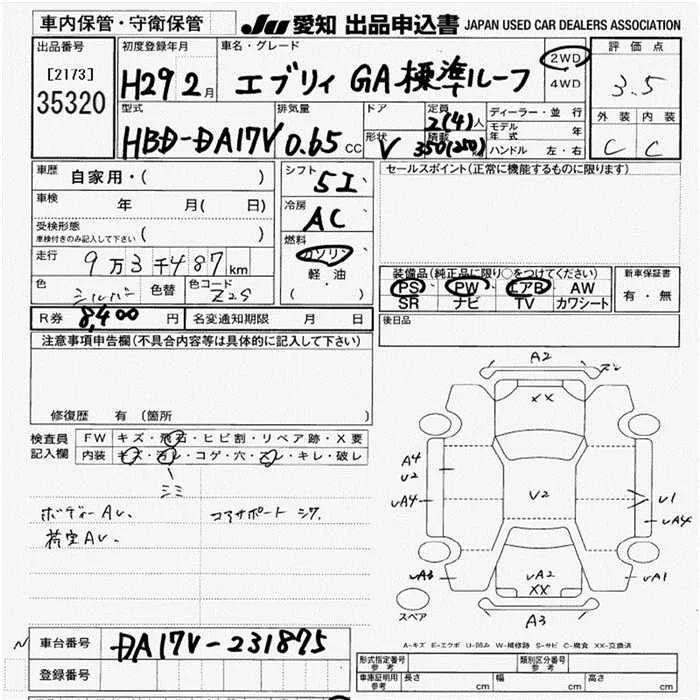 車内保管・守衛保管
JU 愛知 出品申込書 JAPAN USED CAR DEALERS ASSOCIATION
出品番号
[2173]
35320
初度登録年月
H29 2月
車名・グレード
エブリィ GA 標準ルーフ
2WD
4WD
評価点
3.5
外装 内装
C C
型式
HBD-DA17V
排気量
0.65 CC
ドア
形状
V
定員
2(4)人
積載
350(250)
ディーラー・並行
モデル年式 年
ハンドル 左・右
車歴
自家用・( )
車検
年 月( 日)
受検形態
車検付きのみ記入して下さい ( )
走行
9万3千487km
色
シルバー
色替
色コード
Z2S
シフト
5I
冷房
AC
燃料
ガソリン
軽・油
( ・ )
セールスポイント(正常に機能するものに限ります)
装備品(純正品に限り○をつけてください)
PS PW エアB AW
SR ナビ TV カワシート
新車保証書
有・無
後日品
R券 8,400 円
名変通知期限 月 日
注意事項申告欄(不具合内容等は具体的に記入して下さい)
修復歴 有 (箇所
検査員
記入欄
FW キズ・飛石・ヒビ割・リペア跡・X要
内装 キズ・汚レ・コゲ・穴・スレ・キレ・破レ
ミミ
ボディーAU.
荷室AU.
コアサポート シワ.
A2
スレ
XX
A4
U2
UA4
U2
U1
UA4
UA3
UA2
XX
UA1
A3
スペア
A-キズ E-エクボ U-凹み W-補修跡 S-サビ C-腐食 XX-交換済
車台番号 DA17V-231875
登録番号
形式指定番号
参考
類別区分番号
参考
車庫証明用
参考
長さ cm
幅 cm
高さ cm